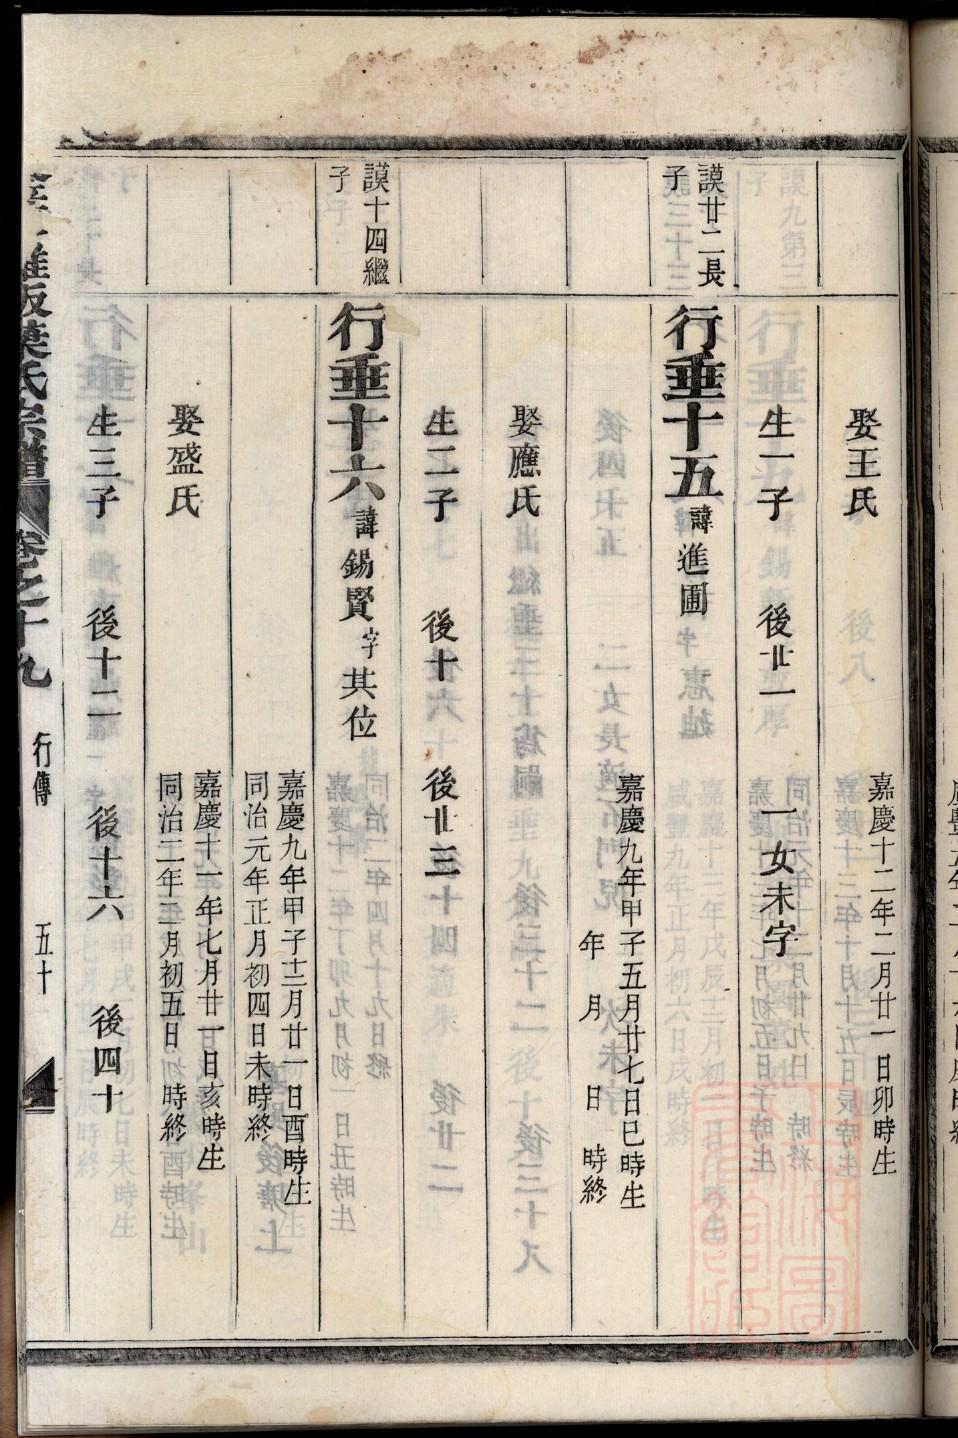 娶王氏
嘉慶十二年二月廿一日卯時生
生一子 後廿一 一女未字
謨廿二長子
行垂十五 諱進圃
嘉慶九年甲子五月廿七日巳時生
年 月 日 時終
娶應氏
生二子 後十 後廿三
謨十四繼子
行垂十六 諱錫賢 字其位
嘉慶九年甲子十二月廿一日酉時生
同治元年正月初四日未時終
娶盛氏
嘉慶十一年七月廿一日亥時生
同治二年三月初五日 時終
生三子 後十二 後十六 後四十
葉氏宗譜 卷之十九 行傳 五十